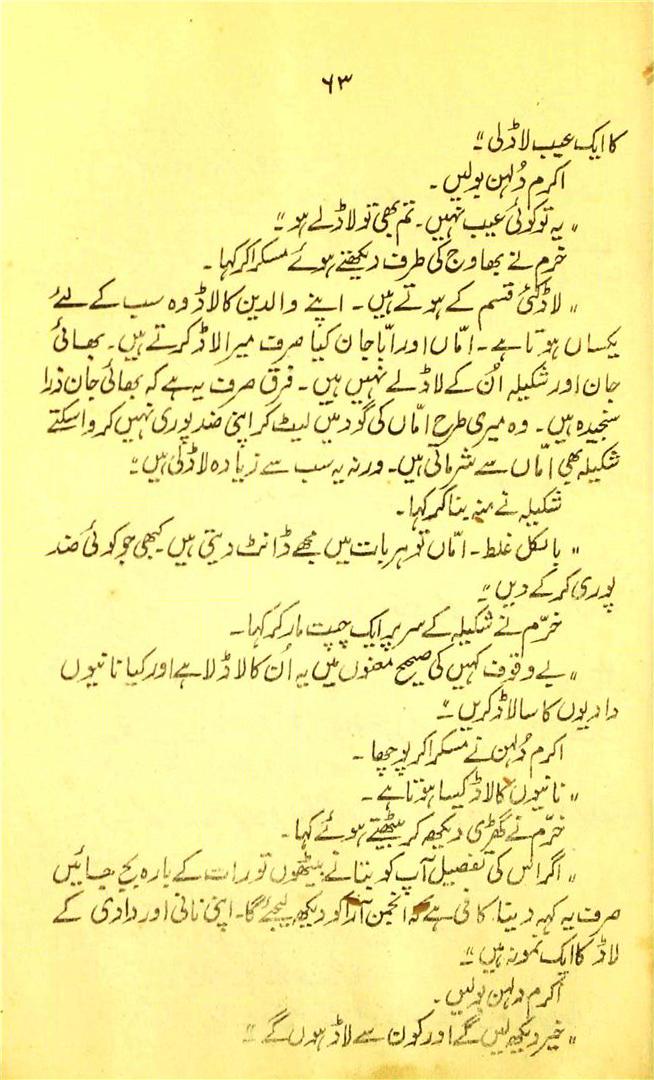 ۶۳
کا ایک عیب لاڈلی ؔ"
اکرم دُلہن بولیں ۔
" یہ تو کوئی عیب نہیں۔ تم بھی تو لاڈلے ہو "
خرم نے بھاوج کی طرف دیکھتے ہوئے مسکرا کر کہا ۔
" لاڈ کئی قسم کے ہوتے ہیں ۔ اپنے والدین کا لاڈ وہ سب کے لئے
یکساں ہوتا ہے ۔ امّاں اور ابّا جان کیا صرف میرا لاڈ کرتے ہیں ۔ بھائی
جان اور شکیلہ اُن کے لاڈلے نہیں ہیں ۔ فرق صرف یہ ہے کہ بھائی جان ذرا
سنجیدہ ہیں ۔ وہ میری طرح امّاں کی گود میں لیٹ کر اپنی ضد پوری نہیں کرواسکتے
شکیلہ بھی امّاں سے شرماتی ہیں۔ ورنہ یہ سب سے زیادہ لاڈلی ہیں "
شکیلہ نے منہ بنا کر کہا ۔
" بالکل غلط ۔ امّاں تو ہر بات میں مجھے ڈانٹ دیتی ہیں ۔ کبھی جو کوئی ضد
پوری کر کے دیں "
خرّم نے شکیلہ کے سر پر ایک چپت مار کر کہا ۔
" بے وقوف کہیں کی صحیح معنوں میں یہ اُن کا لاڈلا ہے اور کیا نانیوں
دادیوں کا سا لاڈ کریں "
اکرم دُلہن نے مسکرا کر پوچھا ۔
" نانیوں کا لاڈ کیسا ہوتا ہے ۔
خرّم نے گھڑی دیکھ کر بیٹھتے ہوئے کہا ۔
" اگر اس کی تفصیل آپ کو بتانے بیٹھوں تو رات کے بارہ بج جائیں
صرف یہ کہہ دینا کافی ہے کہ انجمن آرا کو دیکھ لیجئے گا۔ اپنی نانی اور دادی کے
لاڈ کا ایک نمونہ ہیں "
اکرم دلہن بولیں ۔
" خیر دیکھ لیں گے اور کون سے لاڈ ہوں گے "